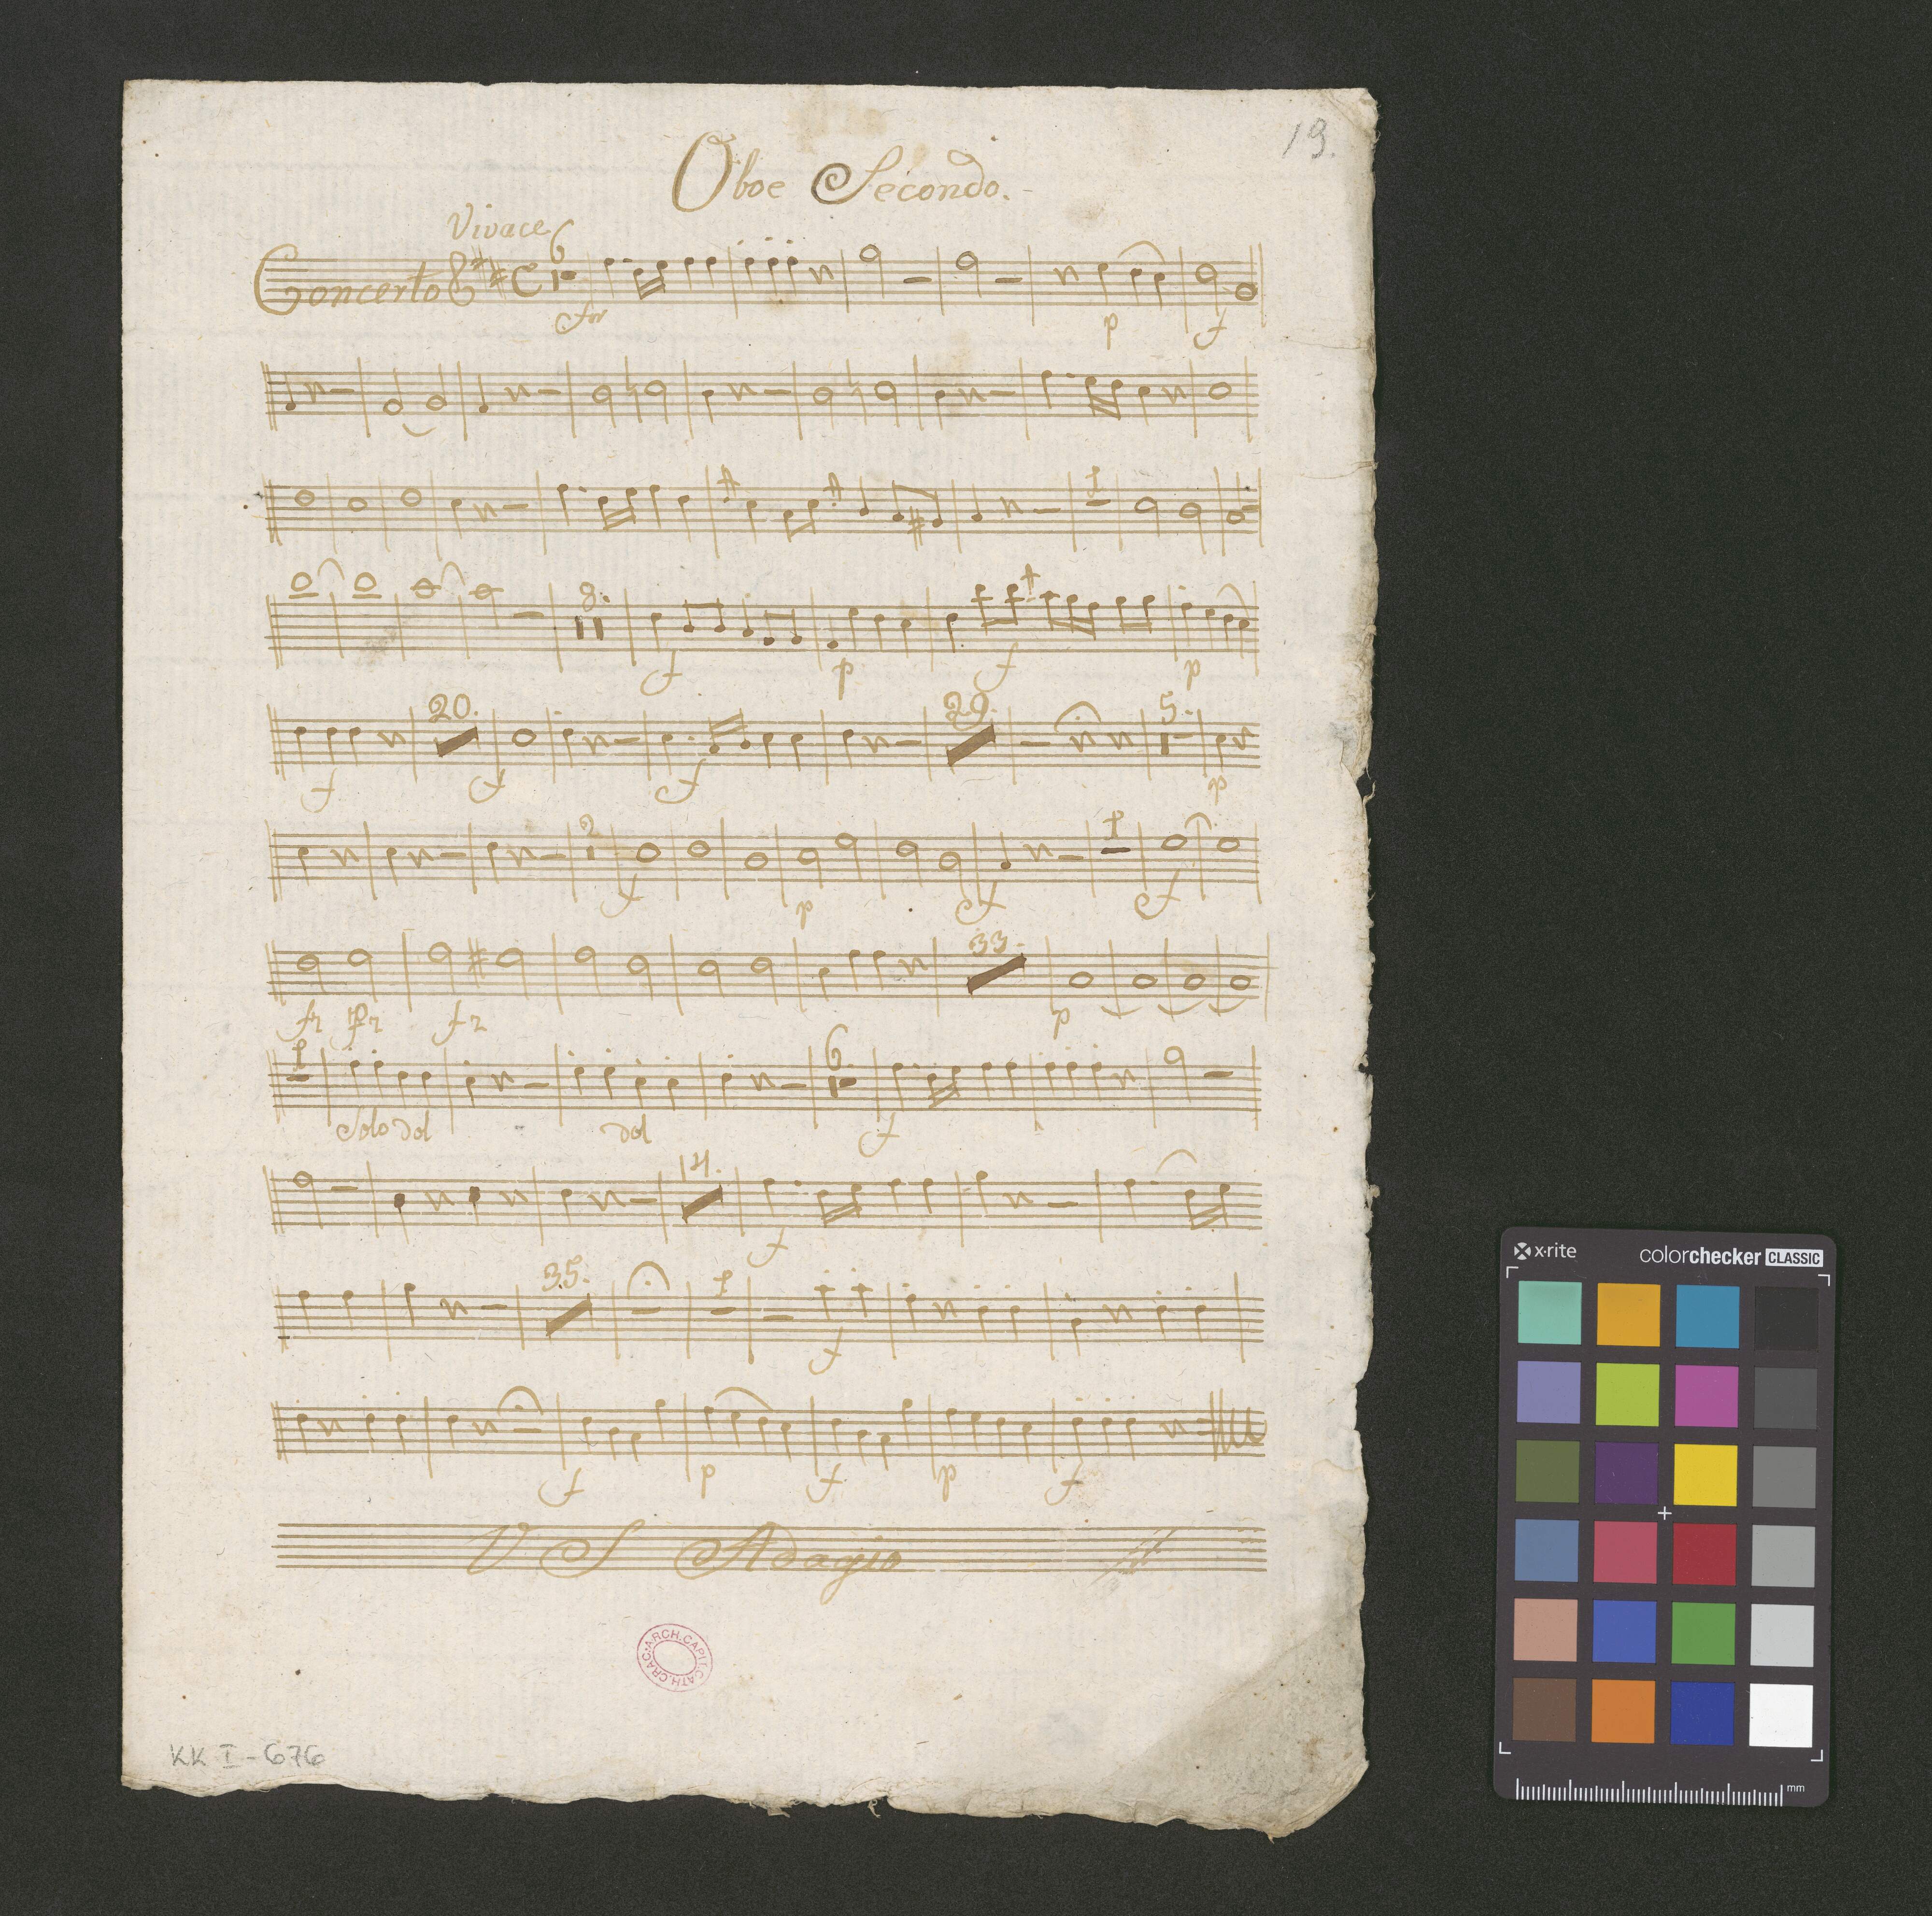 19.
Oboe Secondo.
Vivace
Concerto
6
for
p
f
1
8.
f
p
f
p
20.
29.
5.
f
f
f
p
2
1
f
p
f
f
33.
fz
fz
p
1
6
Solo dol
dol
f
14.
f
35.
1
f
f
p
f
p
f
V S Adagio
ARCH.CAPIT.CATH.CRAC.
KK I-676
x·rite
colorchecker CLASSIC
mm